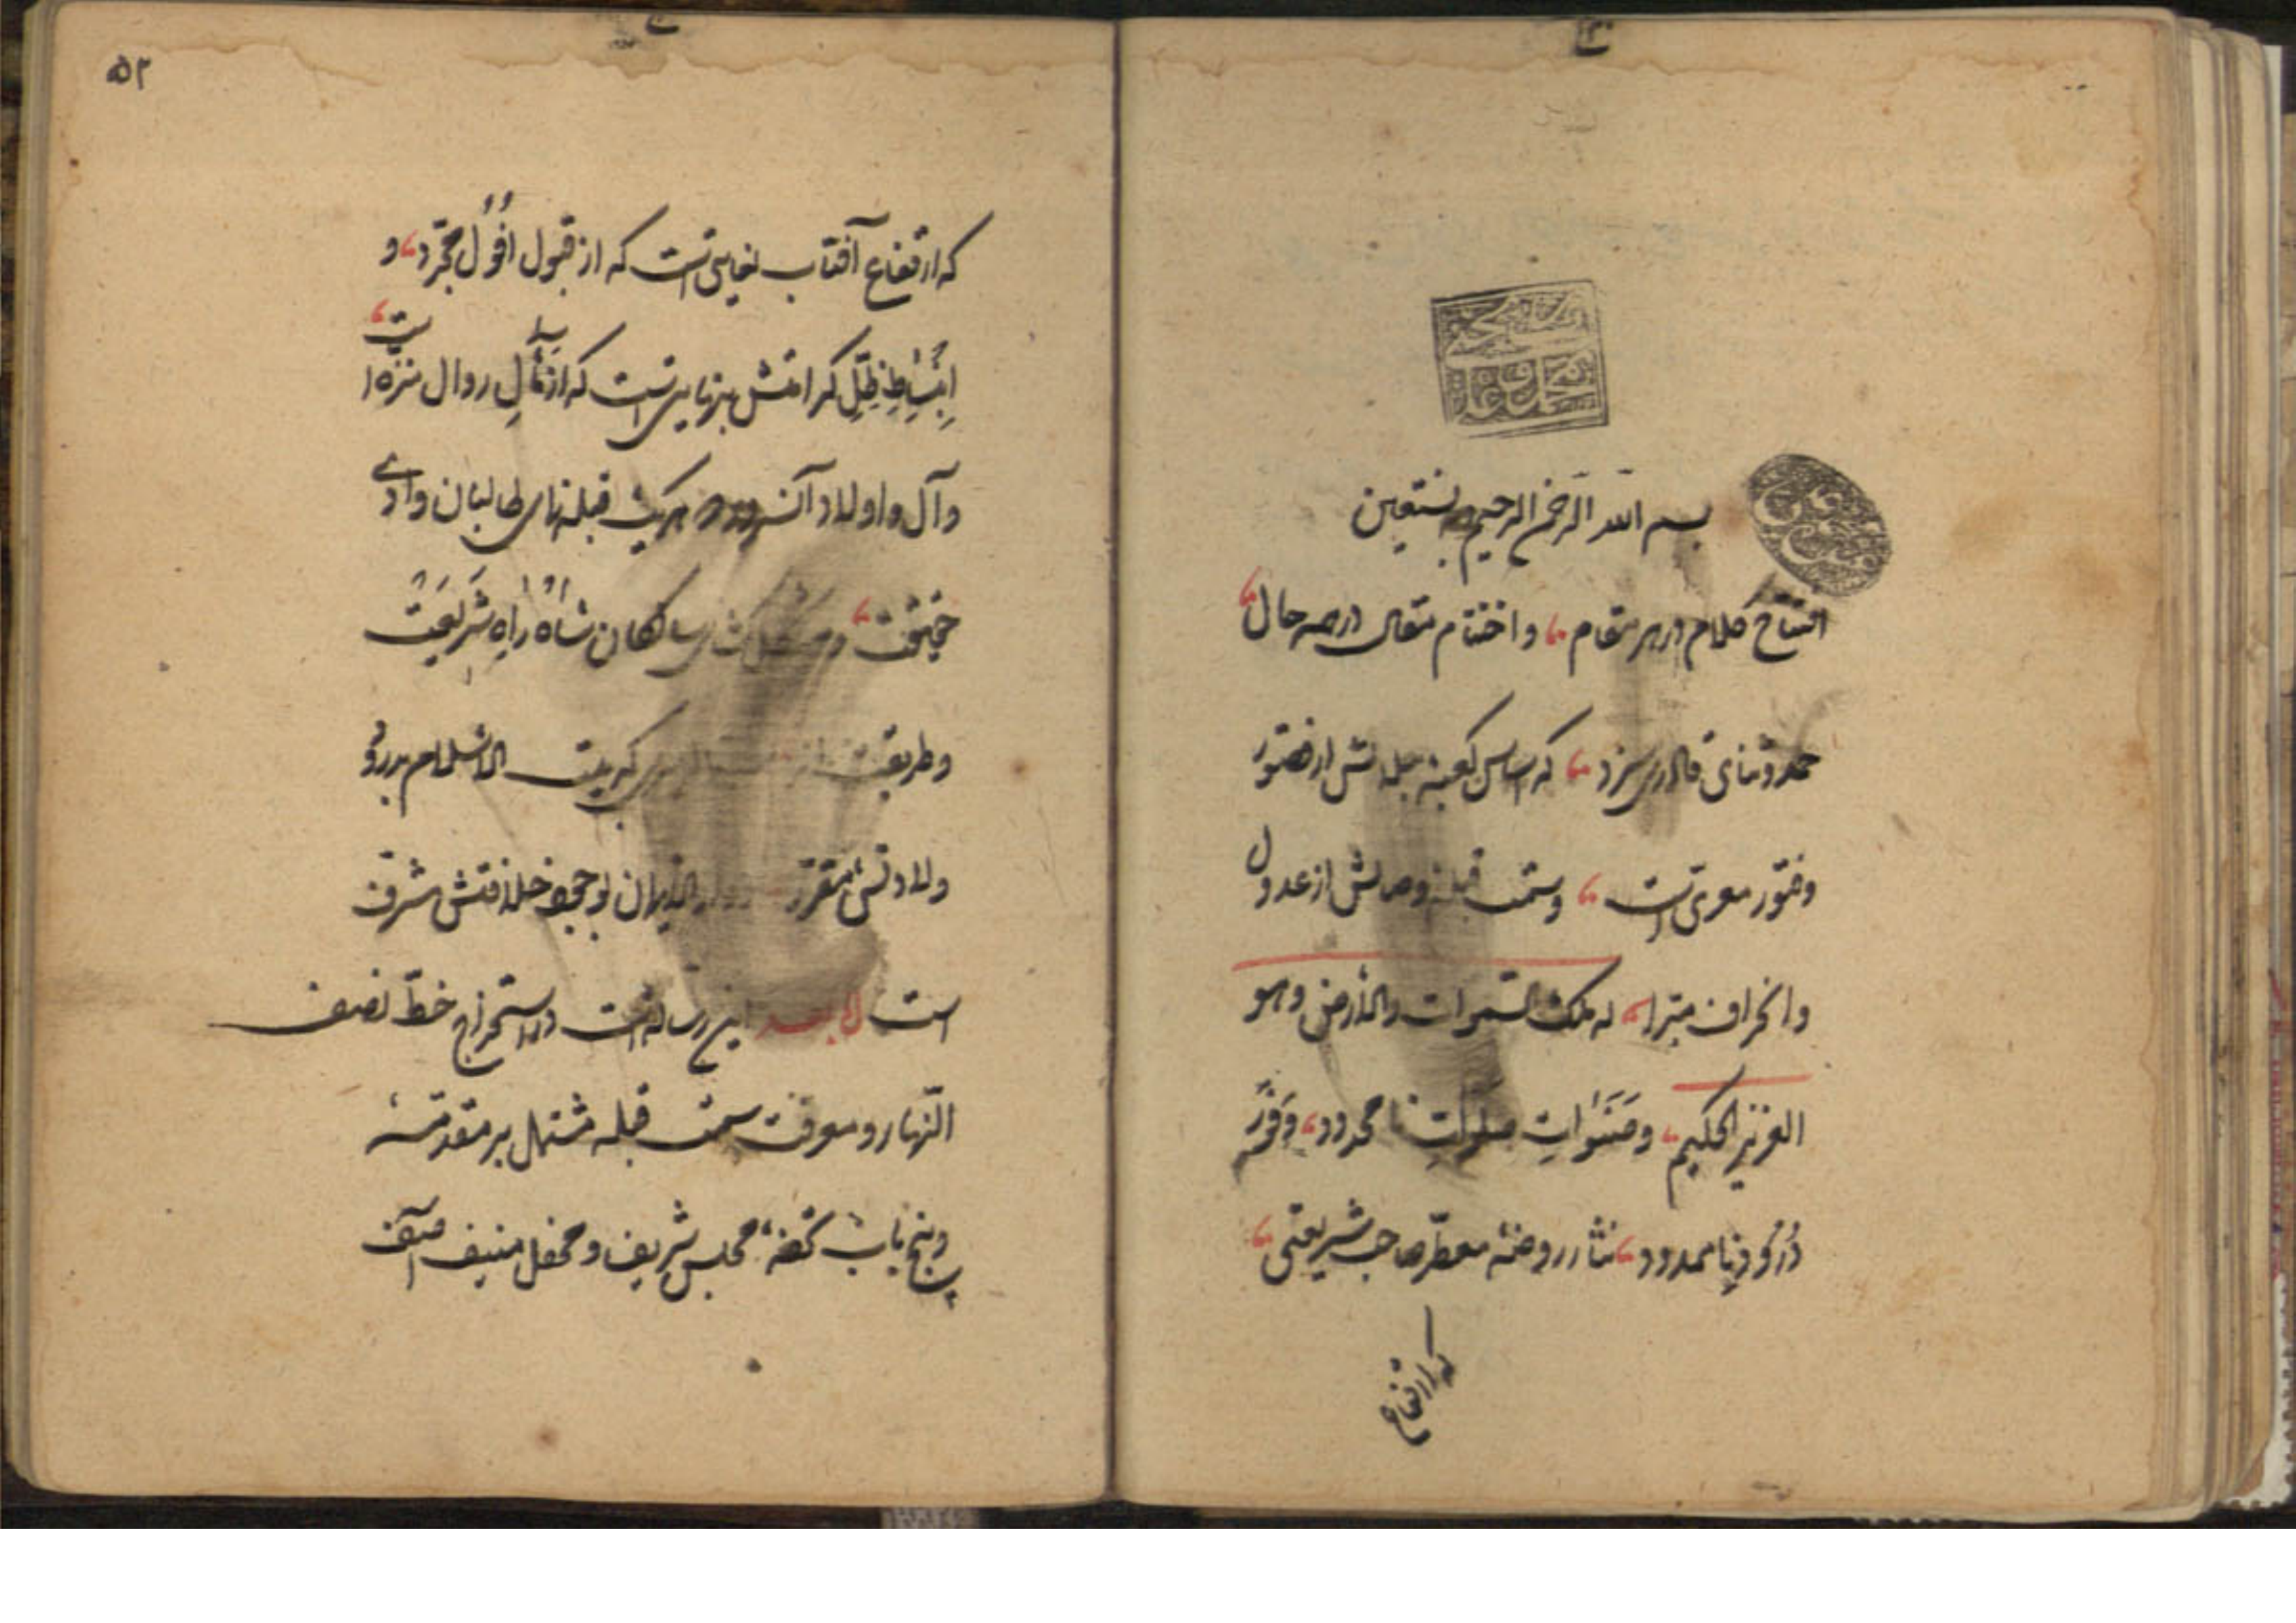 بسم الله الرحمن الرحیم وبه نستعین
افتتاح کلام در هر مقام، و اختتام مقال در همه حال،
حمد و ثنای قادری سزد، که اساس کعبه جلالتش از قصور
و فتور معری است، و سمت قبلهٔ وصالش از عدول
و انحراف مبرا، له ملک السموات والارض وهو
العزیز الحکیم، و صلوات نامحدود، و
درود نامعدود، نثار روضهٔ معطر صاحب شریعتی،
که ارتفاع
۵۲
که ارتفاع آفتاب است که از قبول افول مجرد، و
انبساط ظل کرامتش است که از زوال منزه است،
و آل و اولاد آن سرور هر یک قبله نمای طالبان وادی
حقیقت، سالکان شاه راه شریعت
و طریقت الاسلام بدر و
ولادتش مقرر بوجود خلافتش مشرف
است اما بعد این رساله است در استخراج خط نصف
النهار و معرفت سمت قبله مشتمل بر مقدمه
و پنج باب تحفهٔ مجلس شریف و محفل منیف آصف